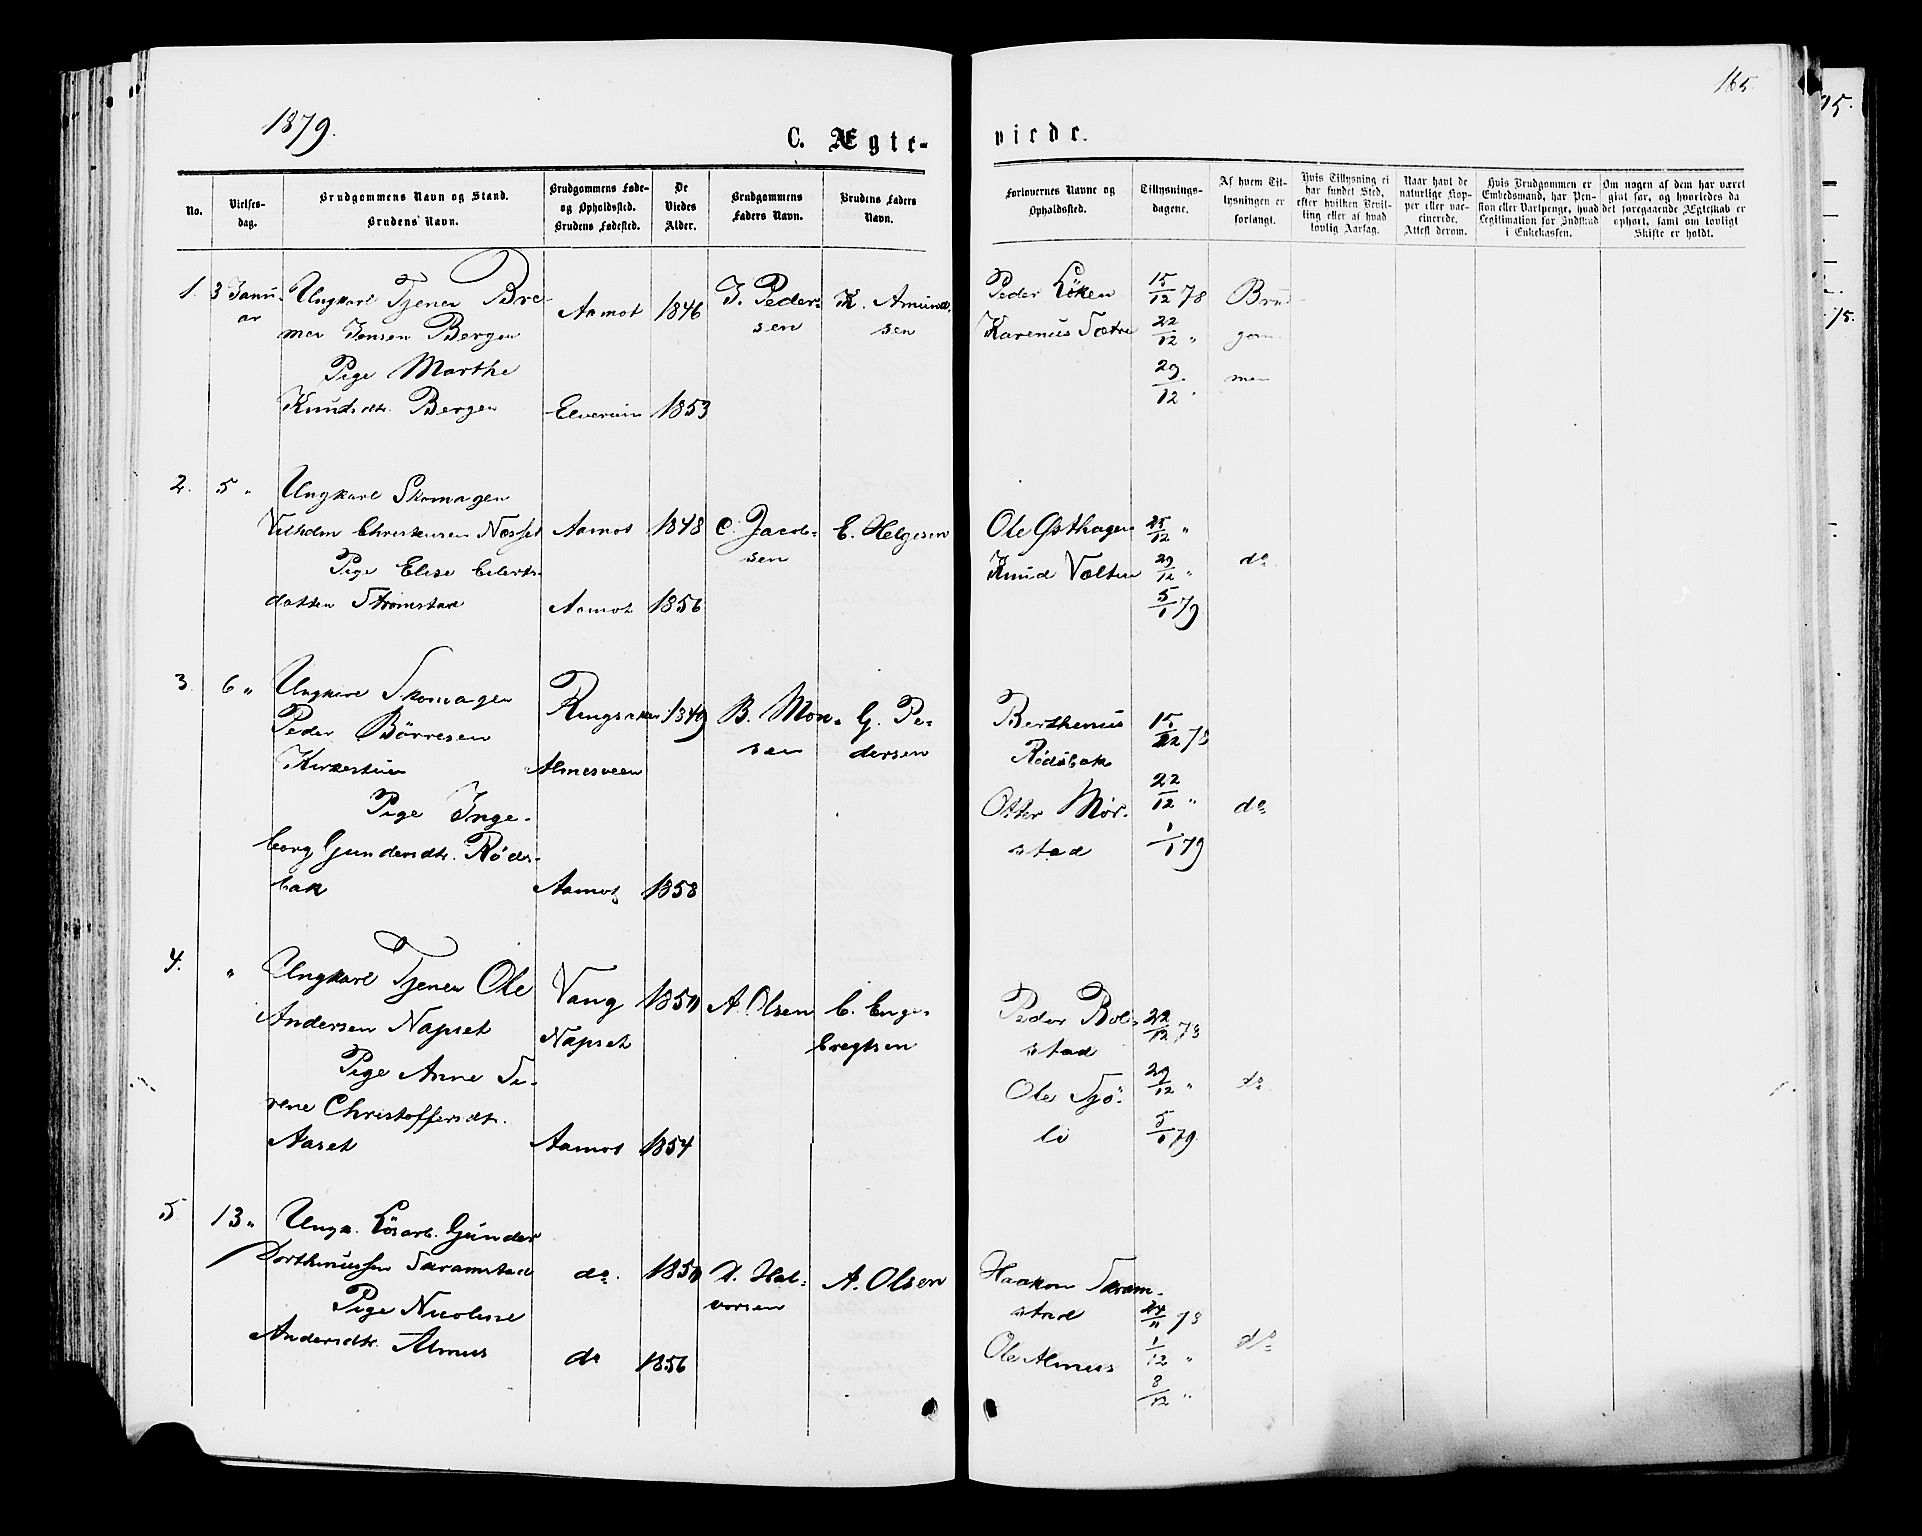 165.
1879.
C. Ægte-
viede.
No.
Vielses-
dag.
Brudgommens Navn og Stand.
Brudens Navn.
Brudgommens Føde-
og Opholdssted.
Brudens Fødested.
De
Viedes
Alder.
Brudgommens
Faders Navn.
Brudens Faders
Navn.
Forlovernes Navne og
Opholdssted.
Tillysnings-
dagene.
Af hvem Til-
lysningen er
forlangt.
Hvis Tillysning ei
har fundet Sted,
efter hvilken Bevil-
ling eller af hvad
lovlig Aarsag.
Naar havt de
naturlige Kop-
per eller vac-
cinerede.
Attest derom.
Hvis Brudgommen er
Embedsmand, har Pen-
sion eller Vartpenge, hvad
Legitimation for Indskud
i Enkekassen.
Om nogen af dem har været
gift før, og hvorledes da
det foregaaende Ægteskab er
ophørt, samt om lovligt
Skifte er holdt.
1. 3 Janu-
ar
Ungkarl Tjener Bre-
mer Jensen Bergen
Pige Marthe
Knudsdtr. Bergen
Aamot 1846
Elverum 1853
J. Peder-
sen
K. Amund-
sen
Peder Löken
Karenus Sætre
15/12 78
22/12 "
29/12 "
Brud-
gom-
men
2. 5 "
Ungkarl Skomager
Vilhelm Christensen Næsset
Pige Elise Eilerts-
datter Strømstad
Aamot 1848
Aamot 1856
C. Jacob-
sen
E. Helgesen
Ole Østhagen
Knud Vælten
25/12 "
29/12 "
5/1 79
do
3. 6 "
Ungkarl Skomager
Peder Börresen
Kirkestuen
Pige Inge-
borg Gundersdtr. Röds-
bak
Ringsaker 1849
Almesveen
Aamot 1858
B. Mon-
sen
G. Pe-
dersen
Berthenius
Rødsbak
Otter Mør-
stad
15/12 78
22/12 "
1/1 79
do
4. "
Ungkarl Tjener Ole
Andersen Næpset
Pige Anne Se-
rene Christoffersdtr.
Aaset
Vang 1850
Næpset
Aamot 1854
A. Olsen
C. Enge-
bregtsen
Peder Bol-
stad
Ole Sjö-
li
22/12 78
29/12 "
5/1 79.
do
5 13 "
Ungk. Lösarb. Gunder
Dorthinussen Skramstad
Pige Nicoline
Andersdtr. Almus
do. 1850
do 1856
D. Hal-
vorsen
A. Olsen
Haakon Skram-
stad
Ole Almus
24/11 78
1/12 "
8/12 "
do